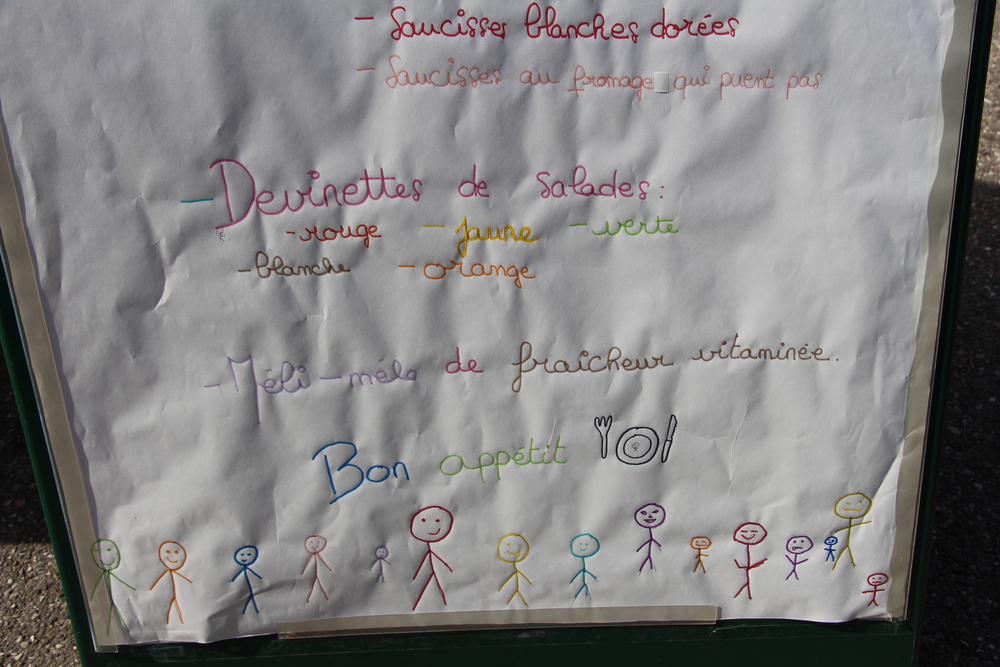 - Saucisses blanches dorées
- Saucisses au fromage qui puent pas
- Devinettes de salades :
- rouge - jaune - verte
- blanche - orange
- Méli-mélo de fraîcheur vitaminée.
Bon appétit